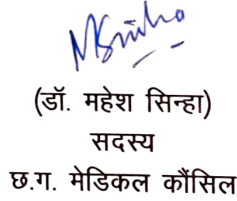 MSinha
(डॉ. महेश सिन्हा)
सदस्य
छ.ग. मेडिकल कौंसिल